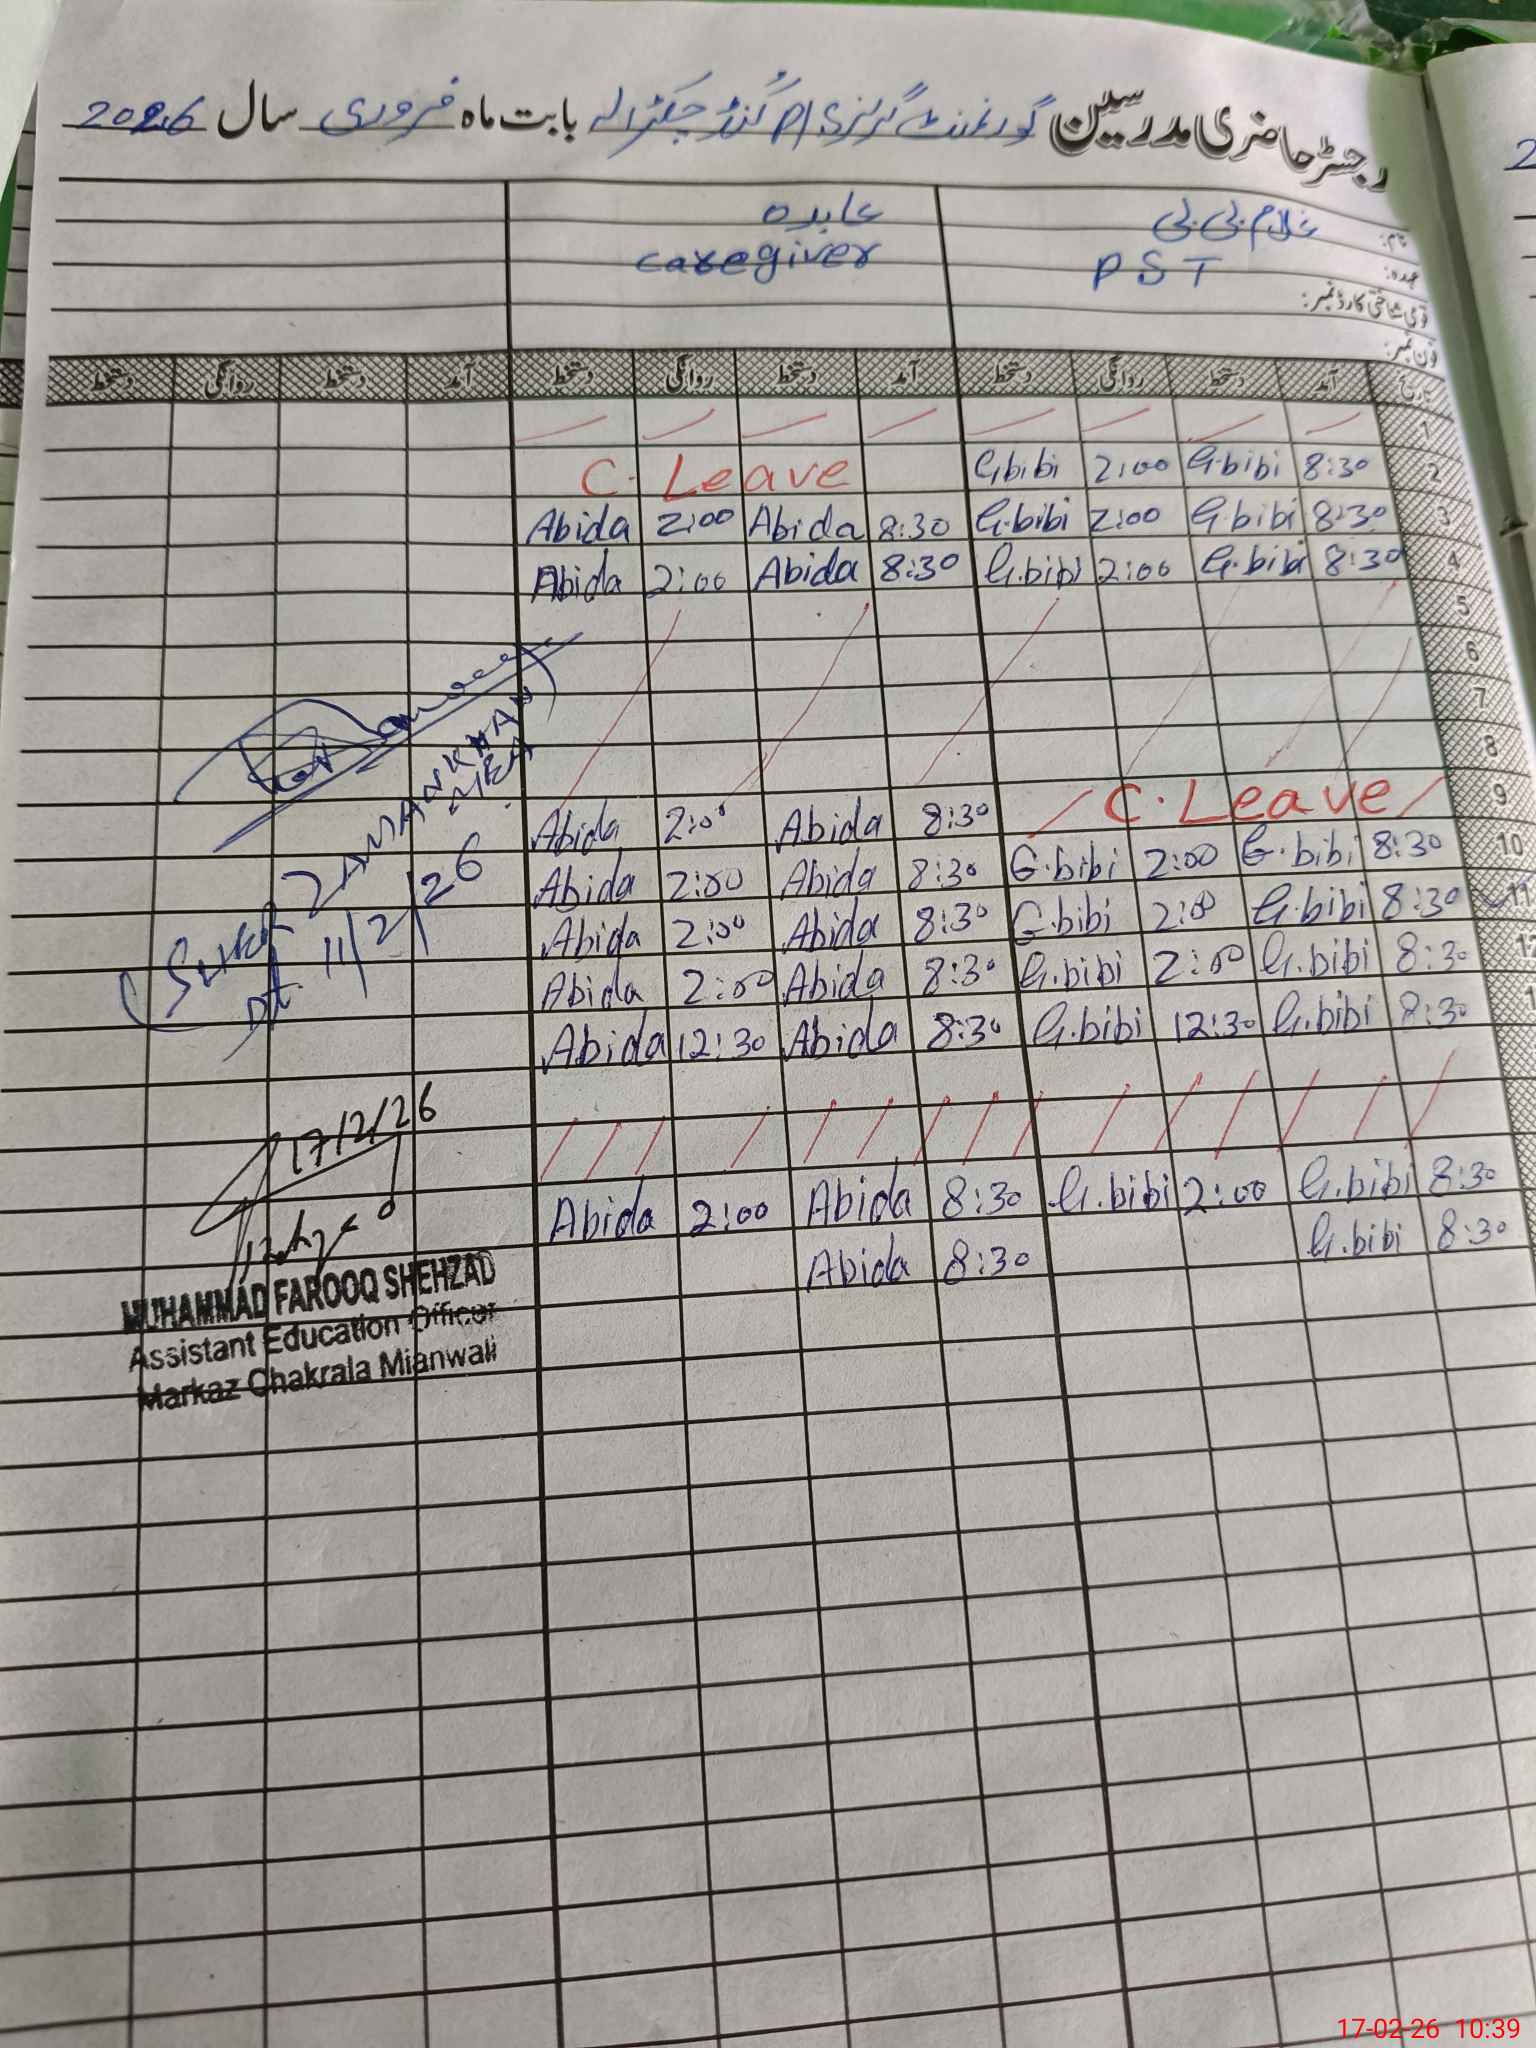 رجسٹر حاضری مدرسین گورنمنٹ گرلز PI کنڈ چکڑالہ بابت ماہ فروری سال 2026
نام: غلام بی بی عابدہ
عہدہ: PST caregiver
قومی شناختی کارڈ نمبر:
فون نمبر:
تاریخ آمد دستخط روانگی دستخط آمد دستخط روانگی دستخط آمد دستخط روانگی دستخط
1
2 8:30 G.bibi 2:00 G.bibi C. Leave
3 8:30 G.bibi 2:00 G.bibi 8:30 Abida 2:00 Abida
4 8:30 G.bibi 2:00 G.bibi 8:30 Abida 2:00 Abida
5
6
7
8
9 C. Leave 8:30 Abida 2:00 Abida
10 8:30 G.bibi 2:00 G.bibi 8:30 Abida 2:00 Abida
11 8:30 G.bibi 2:00 G.bibi 8:30 Abida 2:00 Abida
8:30 G.bibi 2:00 G.bibi 8:30 Abida 2:00 Abida
8:30 G.bibi 12:30 G.bibi 8:30 Abida 12:30 Abida
8:30 G.bibi 2:00 G.bibi 8:30 Abida 2:00 Abida
8:30 G.bibi 8:30 Abida
ZAMAN KHAN
Dt 11/2/26
17/2/26
MUHAMMAD FAROOQ SHEHZAD
Assistant Education Officer
Markaz Chakrala Mianwali
17-02-26 10:39